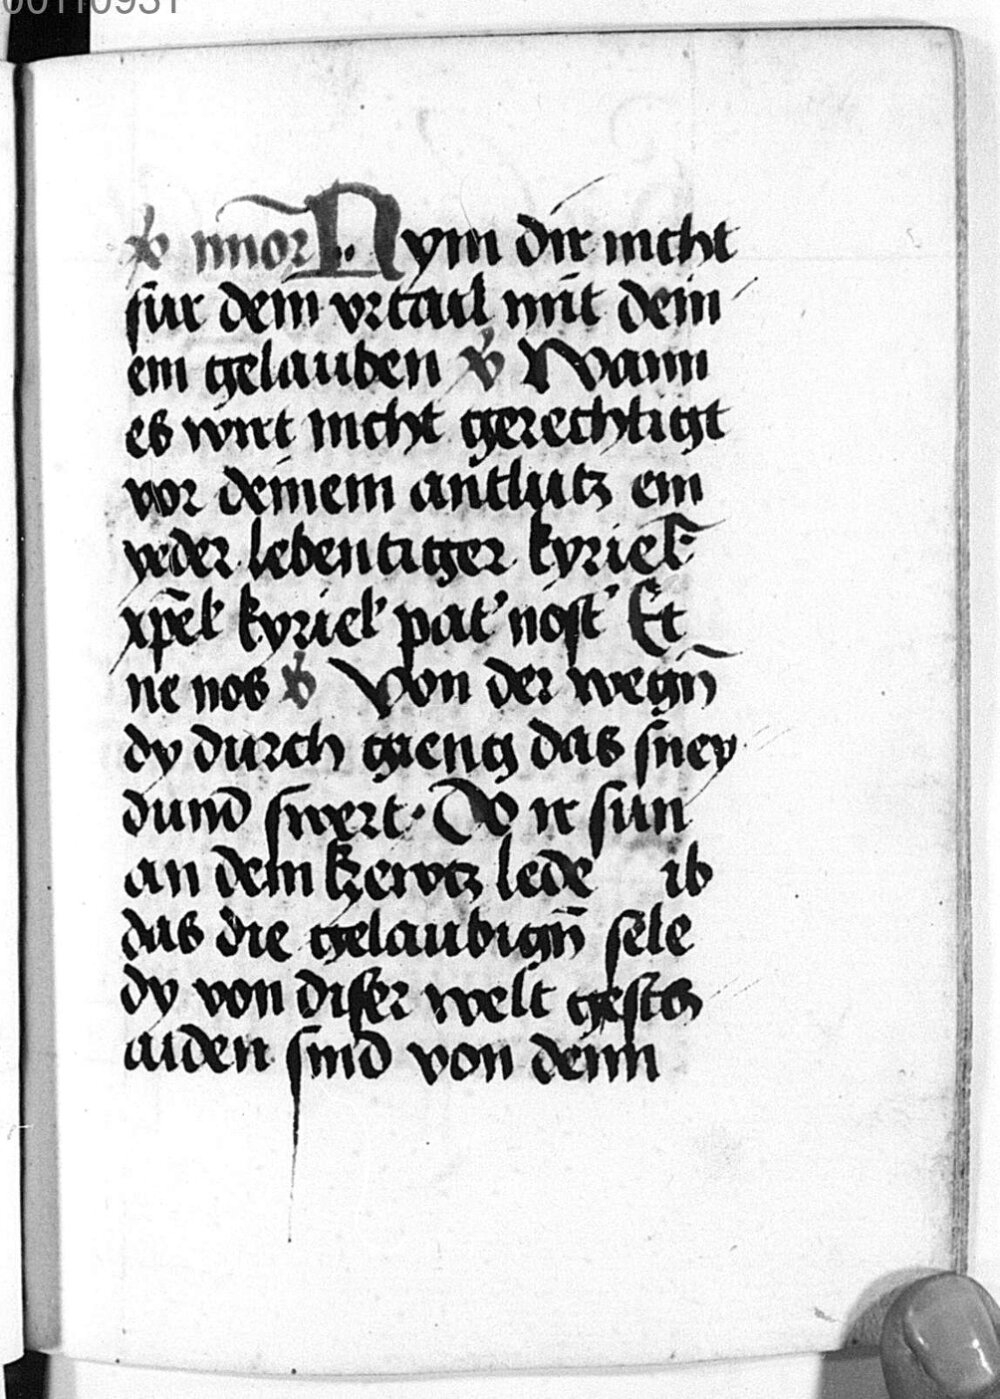 00110931
℣ minor Nym dir nicht
fur dein vrtail mit dein
em gelauben ℣ Wann
es wirt nicht gerechtigt
vor deinem antlutz ein
yeder lebentiger kyriel
xp̄el kyriel pat' nost' Et
ne nos ℣ Von der wegn̄
dy durch gieng das sney
dund swert · Do ir sun
an dem kzewtz lede ib
das die gelaubign̄ sele
dy von diser welt
aiden sind von dein